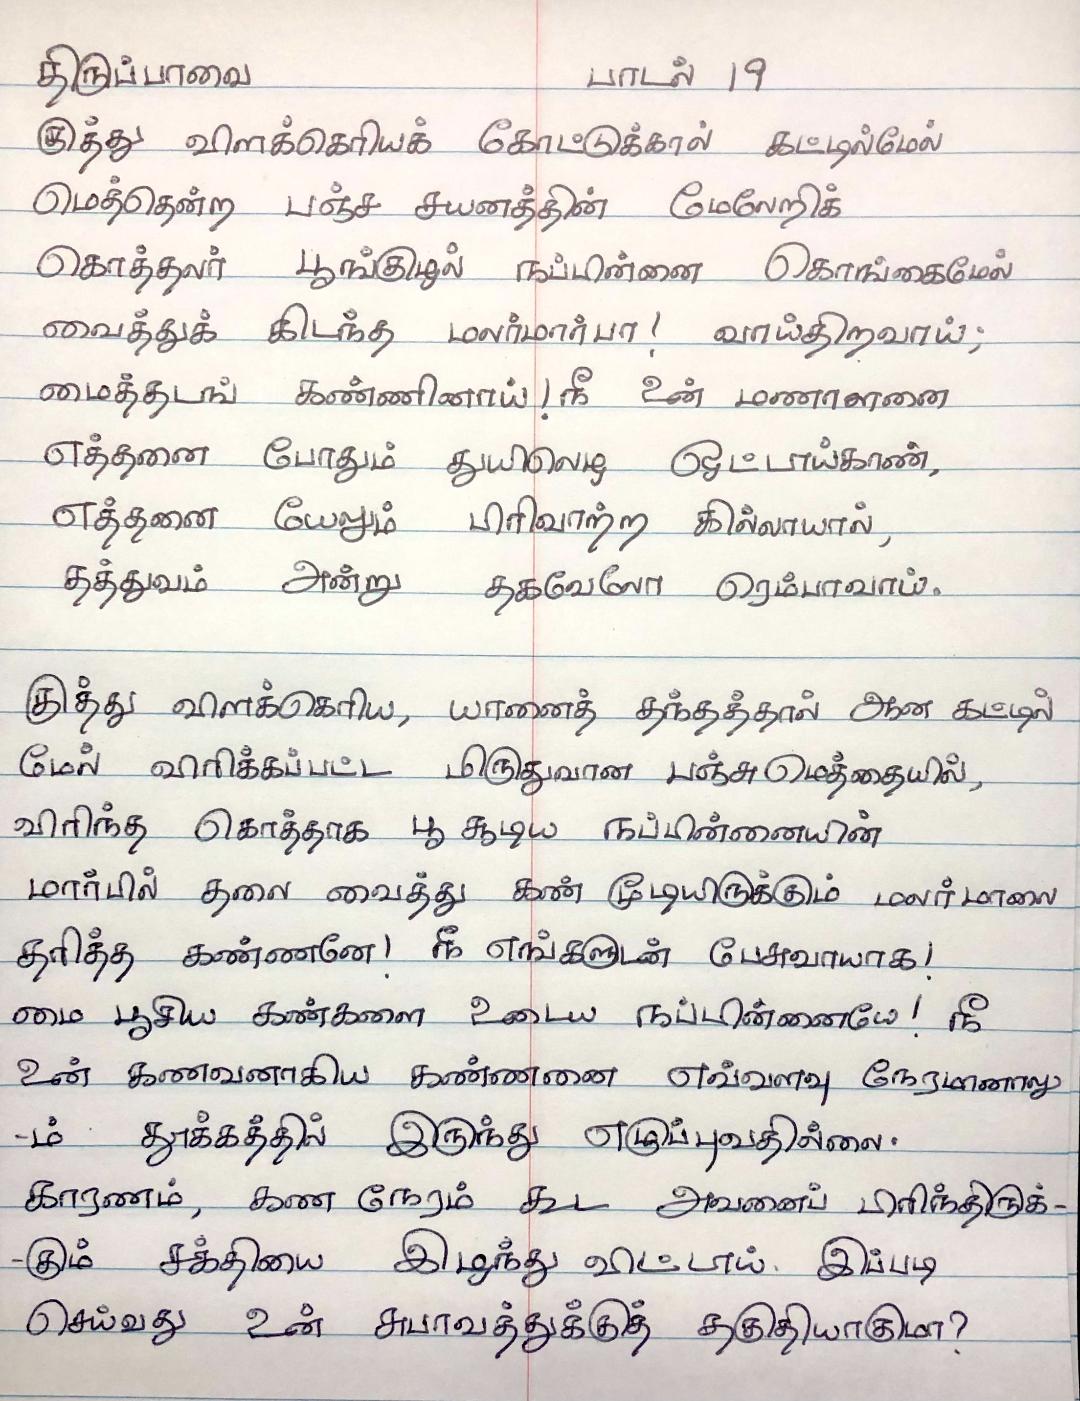 திருப்பாவை பாடல் 19
குத்து விளக்கெரியக் கோட்டுக்கால் கட்டில்மேல்
மெத்தென்ற பஞ்ச சயனத்தின் மேலேறிக்
கொத்தலர் பூங்குழல் நப்பின்னை கொங்கைமேல்
வைத்துக் கிடந்த மலர்மார்பா! வாய்திறவாய்;
மைத்தடங் கண்ணினாய்! நீ உன் மணாளனை
எத்தனை போதும் துயிலெழ ஒட்டாய்காண்,
எத்தனை யேலும் பிரிவாற்ற கில்லாயால்,
தத்துவம் அன்று தகவேலோ ரெம்பாவாய்.
குத்து விளக்கெரிய, யானைத் தந்தத்தால் ஆன கட்டில்
மேல் விரிக்கப்பட்ட மிருதுவான பஞ்சு மெத்தையில்,
விரிந்த கொத்தாக பூ சூடிய நப்பின்னையின்
மார்பில் தலை வைத்து கண் மூடியிருக்கும் மலர் மாலை
தரித்த கண்ணனே! நீ எங்களுடன் பேசுவாயாக!
மை பூசிய கண்களை உடைய நப்பின்னையே! நீ
உன் கணவனாகிய கண்ணனை எவ்வளவு நேரமானாலு
-ம் தூக்கத்தில் இருந்து எழுப்புவதில்லை.
காரணம், கண நேரம் கூட அவனைப் பிரிந்திருக்-
-கும் சக்தியை இழந்து விட்டாய். இப்படி
செய்வது உன் சுபாவத்துக்குத் தகுதியாகுமா?